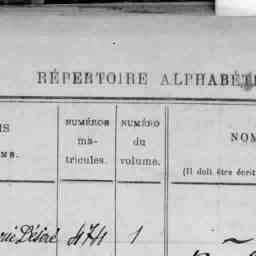 RÉPERTOIRE ALPHABÉTI
NUMÉROS
ma-
tricules.
NUMÉRO
du
volume.
NOM
(Il doit être écrit
Désiré 474 1